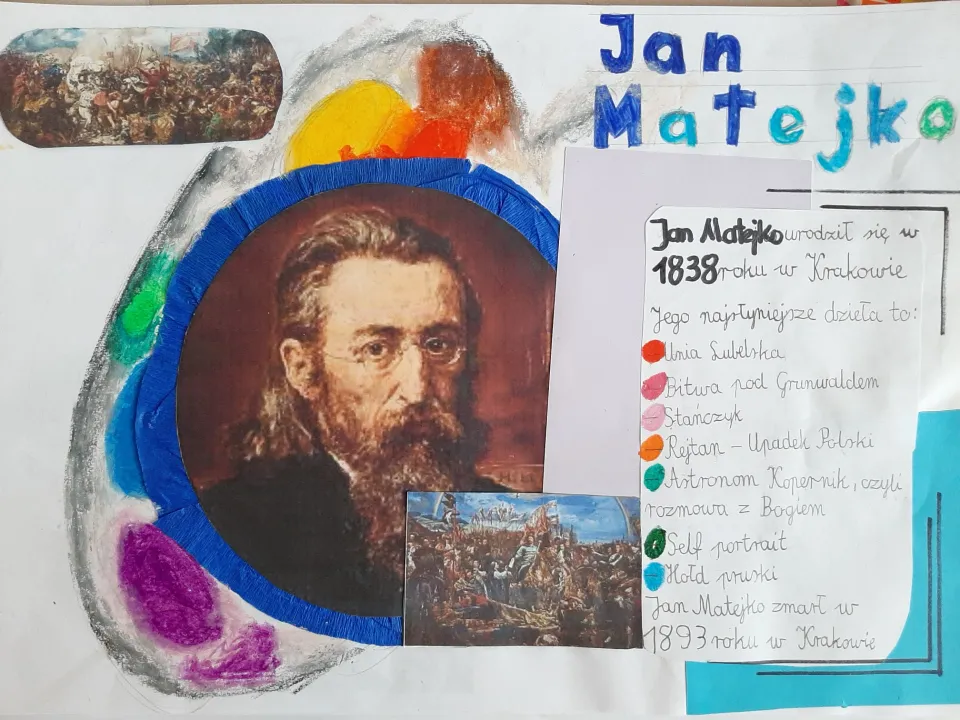 Jan
Matejko
Jan Matejko urodził się w
1838 roku w Krakowie
Jego najsłyniejsze dzieła to:
Unia Lubelska
Bitwa pod Grunwaldem
Stańczyk
Rejtan - Upadek Polski
Astronom Kopernik, czyli
rozmowa z Bogiem
Self portrait
Hołd pruski
Jan Matejko zmarł w
1893 roku w Krakowie